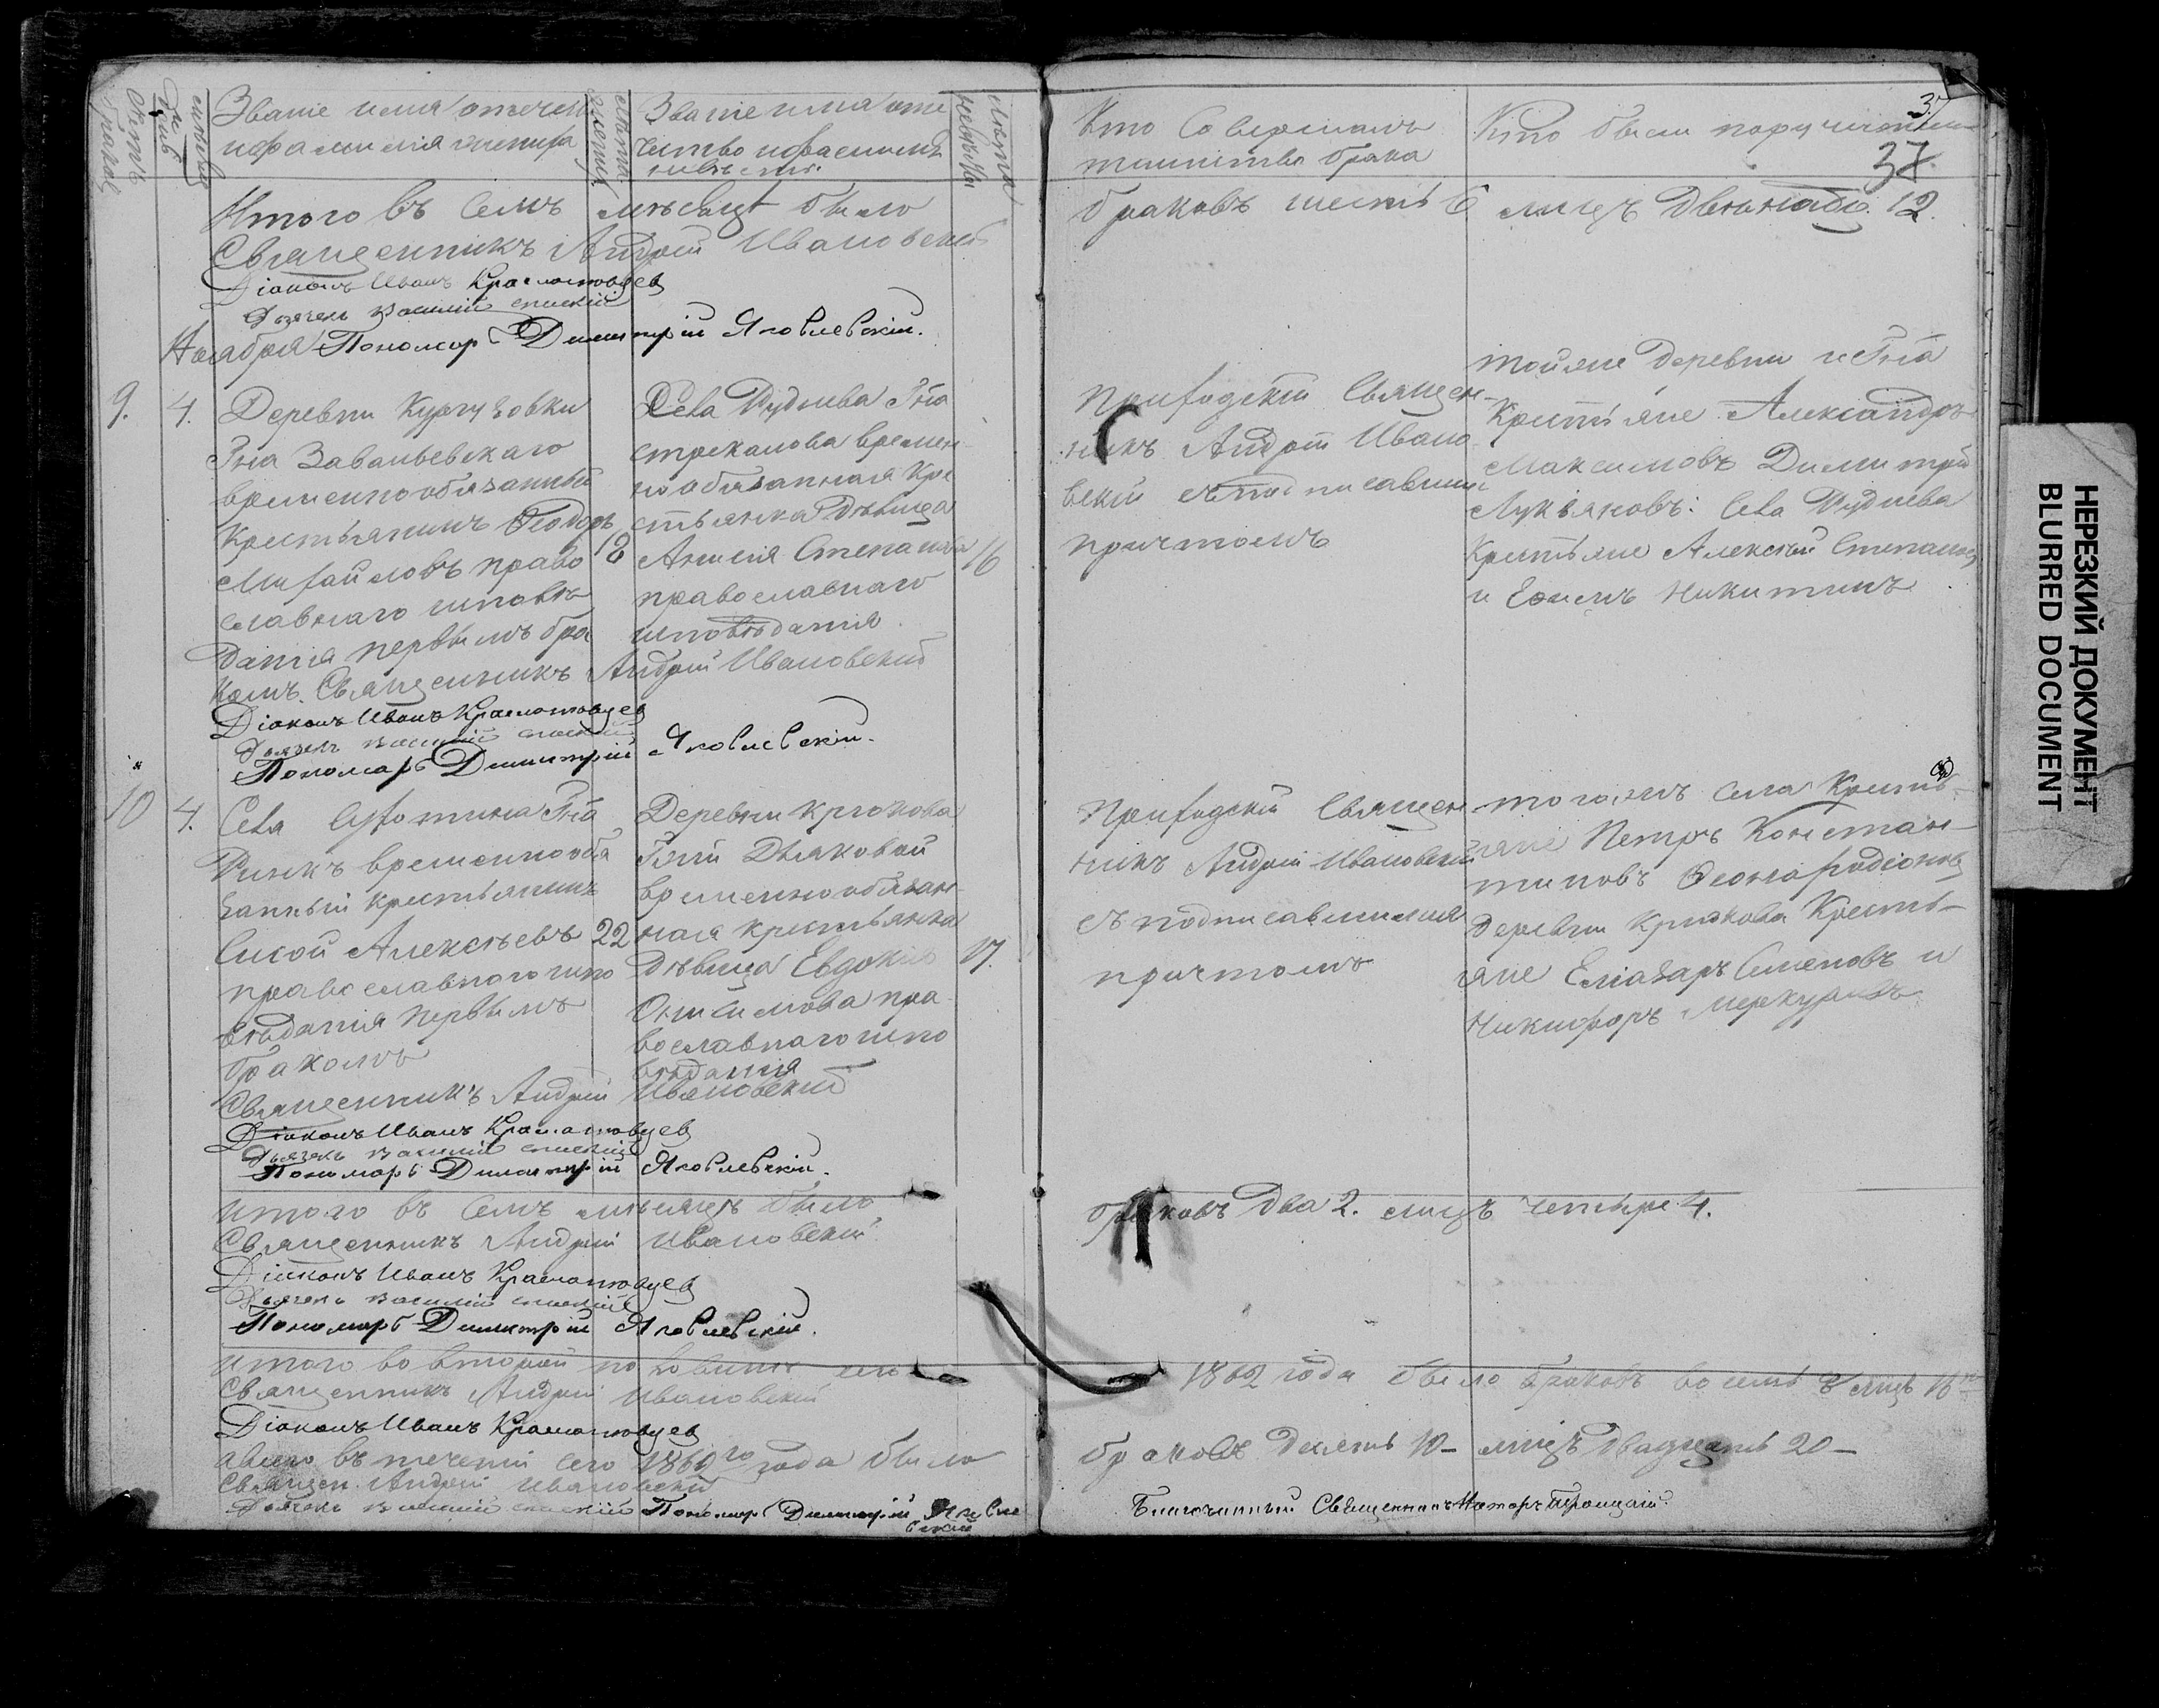 37
37
Счетъ браковъ
Мѣсяцъ и число
Званіе имя отечество
и фамилія жениха
Лѣта жениха
Званіе имя оте
чество и фамилія
невѣсты.
Лѣта невѣсты
Кто Совершалъ
таинство брака
Кто были поручители
Итого въ Семъ мѣсяцѣ было
браковъ шесть 6 лицъ двенадцать. 12.
Священникъ Андрей Ивановскій
Діаконъ Иванъ
Дьячекъ Василій Спаскій
Ноября Пономарь Димитрій Яковлевскій.
9.
4.
Деревни Кургузовки
Гна Завальевскаго
временнообязанный
Крестьянинъ Ѳеодоръ
Михайловъ право
славнаго исповѣ
данія первымъ бра
комъ.
18
Села Руднева Гна
Стреколова времен
но обязанная Кре
стьянка дѣвица
Степанова
православнаго
исповѣданія.
16
Приходскій Священ-
никъ Андрей Ивано
вскій съ подписавшимся
причтомъ
тойже деревни и Гна
Крестьяне Александръ
Максимовъ Димитрій
Лукьяновъ: Села Руднева
Крестьяне Алексѣй Степановъ
и Ефимъ Никитинъ
Священникъ Андрей Ивановскій
Діаконъ Иванъ
Дьячекъ Василій Спаскій
Пономарь Димитрій Яковлевскій.
10
4.
Села Гна
временнообя
занный крестьянинъ
Сысой Алексѣевъ
православнаго испо
вѣданія первымъ
бракомъ
22
Деревни Крюкова
Гжи Дьяковой
временнообязан-
ная крестьянка
дѣвица Евдокія
Онисимова пра
вославнаго испо
вѣданія
17.
Приходскій Священ
никъ Андрей Ивановскій
съ подписавшимся
причтомъ
тогожъ села Крестья-
яне Петръ Констан-
тиновъ Родіоновъ
деревни Крюкова Кресть-
яне Еліазаръ Семеновъ и
Никифоръ Меркуловъ
Священникъ Андрей Ивановскій
Діаконъ Иванъ
Дьячекъ Василій Спаскій
Пономарь Димитрій Яковлевскій.
Итого въ Семъ мѣсяцѣ было
браковъ два 2. лицъ четыре 4.
Священникъ Андрей Ивановскій
Діаконъ Иванъ
Дьячекъ Василій Спаскій
Пономарь Димитрій Яковлевскій.
Итого во второй половинѣ сего
1862 года было браковъ восемь 8 лицъ 16
Священникъ Андрей Ивановскій
Діаконъ Иванъ
а всего въ теченіи сего 1862го года было
браковъ десять 10- лицъ двадцать 20-
Священ. Андрей Ивановскій
Дьячекъ Василій Спаскій Пономарь Димитрій Яковле
вскій
Благочинный Священникъ
НЕРЕЗКИЙ ДОКУМЕНТ
BLURRED DOCUMENT